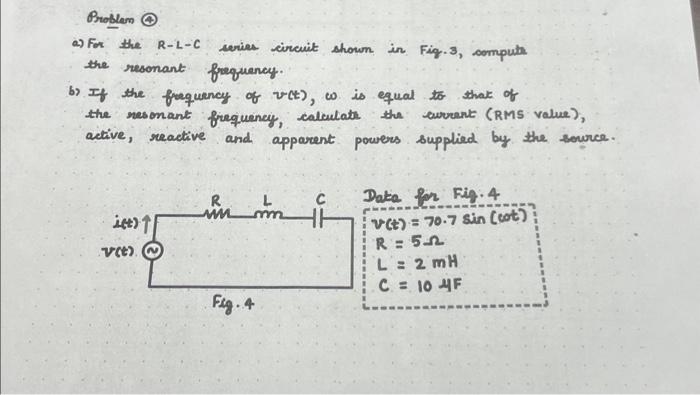 Problem ④
a) For the R-L-C series circuit shown in Fig. 3, compute
the resonant frequency.
b) If the frequency of v(t), ω is equal to that of
the resonant frequency, calculate the current (RMS value),
active, reactive and apparent powers supplied by the source.
R L C
i(t)
v(t)
Fig. 4
Data for Fig. 4
v(t) = 70.7 sin (ωt)
R = 5Ω
L = 2 mH
C = 10 μF